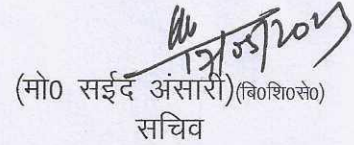 17/05/2023
(मो0 सईद अंसारी)(बि०शि०से०)
सचिव